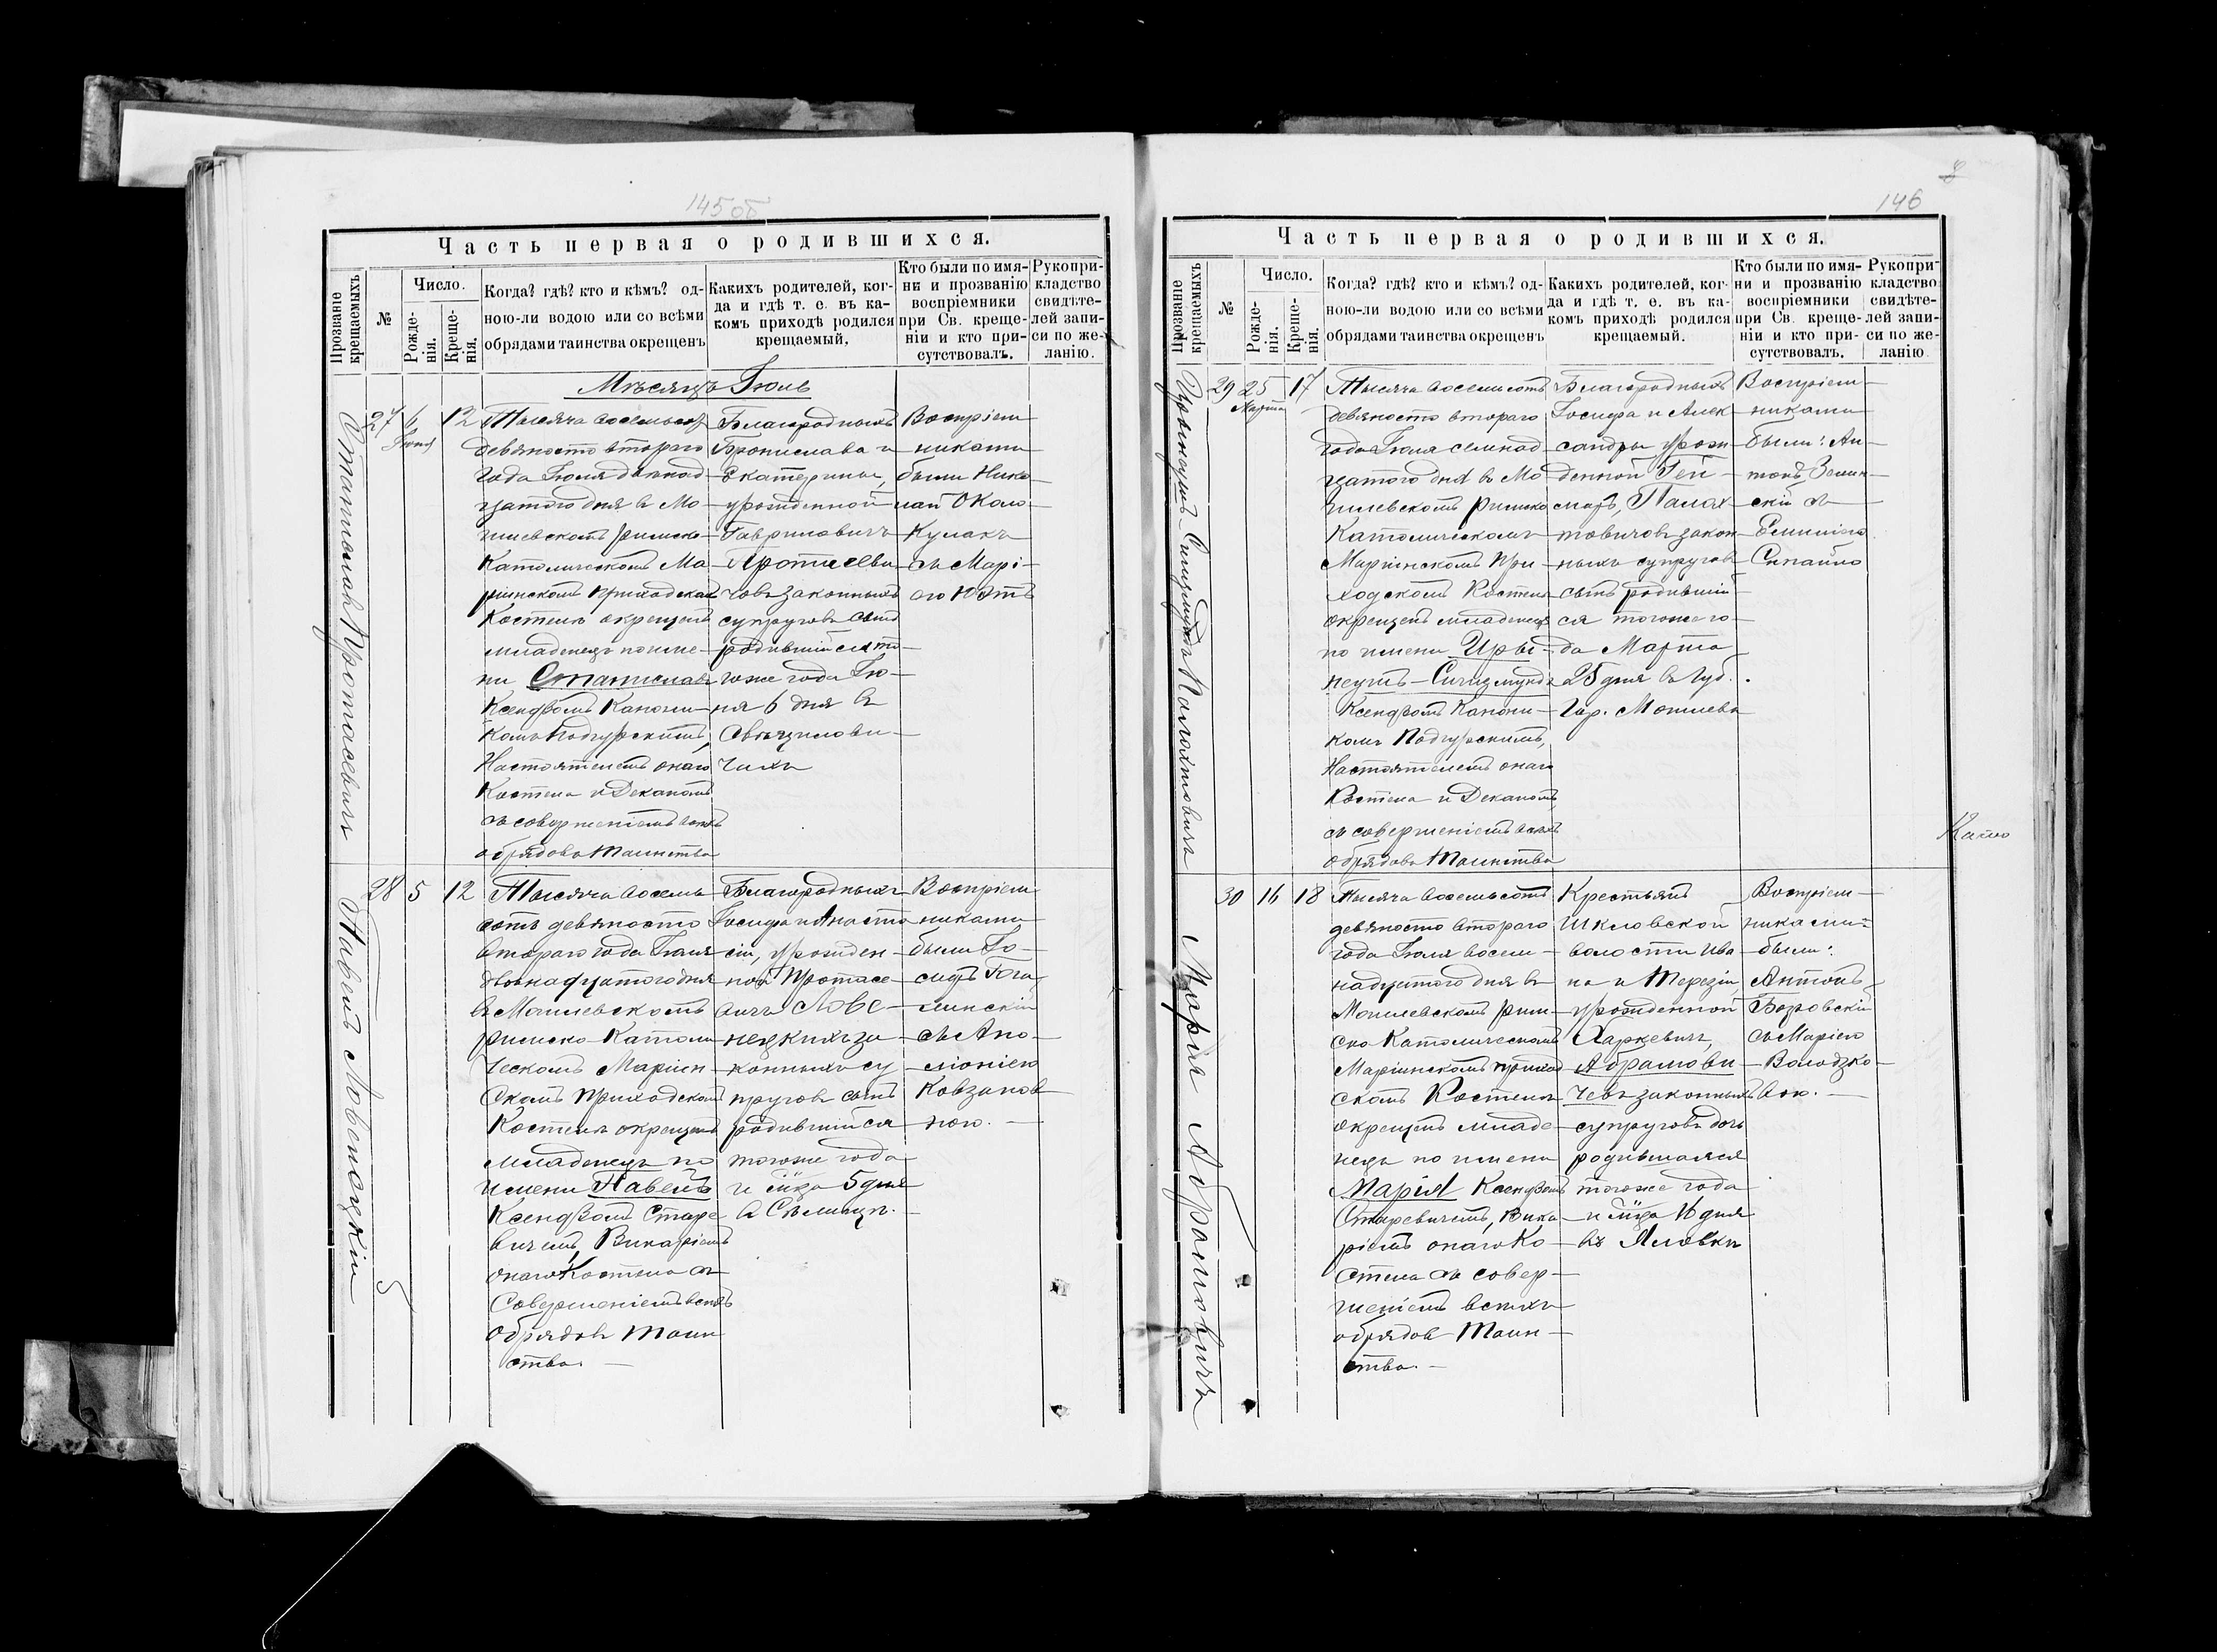 145 об
Часть первая о родившихся.
Прозваніе крещаемыхъ
№
Число.
Рожде-
нія.
Креще-
нія.
Когда? гдѣ? кто и кѣмъ? од-
ною-ли водою или со всѣми
обрядами таинства окрещенъ
Какихъ родителей, ког-
да и гдѣ т. е. въ ка-
комъ приходѣ родился
крещаемый.
Кто были по имя-
ни и прозванію
воспріемники
при Св. креще-
ніи и кто при-
сутствовалъ.
Рукопри-
кладство
свидѣте-
лей запи-
си по же-
ланію.
Мѣсяцъ Іюль
Станиславъ Протасевичъ
27
6
Іюня
12
Тысяча восемьсотъ
девяносто втораго
года Іюля двѣнад-
цатаго дня въ Мо-
гилевскомъ римско-
Католическомъ Ма-
ріинскомъ приходскомъ
Костелѣ окрещенъ
младенецъ по име-
ни Станиславъ
Ксендзомъ Канони-
комъ Подгурскимъ,
Настоятелемъ онаго
Костела и Деканомъ
съ совершеніемъ всѣхъ
обрядовъ Таинства
Благородныхъ
Бронислава и
Екатерины,
урожденной
Гавриловичъ
Протасеви-
човъ законныхъ
супруговъ сынъ
родившійся то-
гоже года Ію-
ня 6 дня въ
Свѣчилови-
чахъ
Воспріем-
никами
были Нико-
лай Около-
Кулакъ
съ Марі-
ею
Павелъ Ловенецкій
28
5
12
Тысяча восемь
сотъ девяносто
втораго года Іюля
двѣнадцатаго дня
въ Могилевскомъ
римско-Католи-
ческомъ Маріин-
скомъ приходскомъ
Костелѣ окрещенъ
младенецъ по
имени Павелъ
Ксендзомъ Старе-
вичемъ, Викаріемъ
онаго Костела съ
совершеніемъ всѣхъ
обрядовъ Таин-
ства.
Благородныхъ
Іосифа и Анаста-
сіи, урожден-
ной Протасе-
вичъ Лове-
нецкихъ за-
конныхъ су-
пруговъ сынъ
родившійся
тогоже года
и м̃ца 5 дня
въ
Воспріем-
никами
были Іо-
сифъ
съ Апо-
лоніею
Ковзанов-
ною.
8
146
Часть первая о родившихся.
Прозваніе крещаемыхъ
№
Число.
Рожде-
нія.
Креще-
нія.
Когда? гдѣ? кто и кѣмъ? од-
ною-ли водою или со всѣми
обрядами таинства окрещенъ
Какихъ родителей, ког-
да и гдѣ т. е. въ ка-
комъ приходѣ родился
крещаемый.
Кто были по имя-
ни и прозванію
воспріемники
при Св. креще-
ніи и кто при-
сутствовалъ.
Рукопри-
кладство
свидѣте-
лей запи-
си по же-
ланію
Сигизмундъ
29
25
Марта
17
Тысяча восемьсотъ
девяносто втораго
года Іюля семнад-
цатаго дня въ Мо-
гилевскомъ римско
Католическомъ
Маріинскомъ при-
ходскомъ Костелѣ
окрещенъ младенецъ
по имени Иры-
неушъ-Сигизмундъ
Ксендзомъ Канони-
комъ Подгурскимъ,
Настоятелемъ онаго
Костела и Деканомъ
съ совершеніемъ всѣхъ
обрядовъ Таинства
Благородныхъ
Іосифа и Алек-
сандры урож-
денной
законныхъ супруговъ
сынъ родившій-
ся тогоже го-
да Марта
25 дня въ Губ.
гор. Могилевѣ
Воспріем-
никами
были: Ан-
тонъ
съ
Емиліею
Марія Абрамовичъ
30
16
18
Тысяча восемьсотъ
девяносто втораго
года Іюля восем-
надцатаго дня въ
Могилевскомъ рим-
ско-Католическомъ
Маріинскомъ приход-
скомъ Костелѣ
окрещенъ младе-
нецъ по имени
Марія Ксендзомъ
Старевичемъ, Вика-
ріемъ онаго Ко-
стела съ совер-
шеніемъ всѣхъ
обрядовъ Таин-
ства.
Крестьянъ
Шкловской
волости Ива-
на и Терезіи,
урожденной
Харкевичъ,
Абрамови-
чевъ законныхъ
супруговъ дочь
родившаяся
тогоже года
и м̃ца 16 дня
въ Яловкѣ
Воспріем-
никами
были:
Антонъ
съ Маріею
Володзко-
вою.